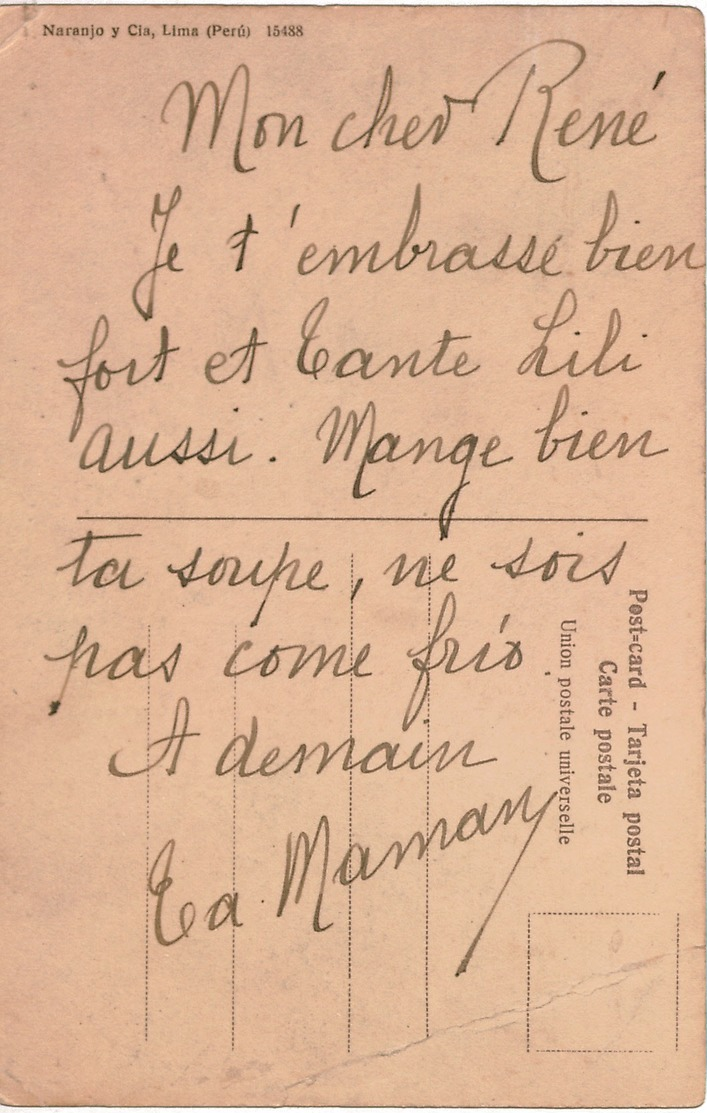 Naranjo y Cia, Lima (Perú) 15488
Mon cher René
Je t'embrasse bien
fort et Tante Lili
aussi. Mange bien
ta soupe, ne sois
pas come frío
A demain
Ta Maman
Post=card - Tarjeta postal
Carte postale
Union postale universelle